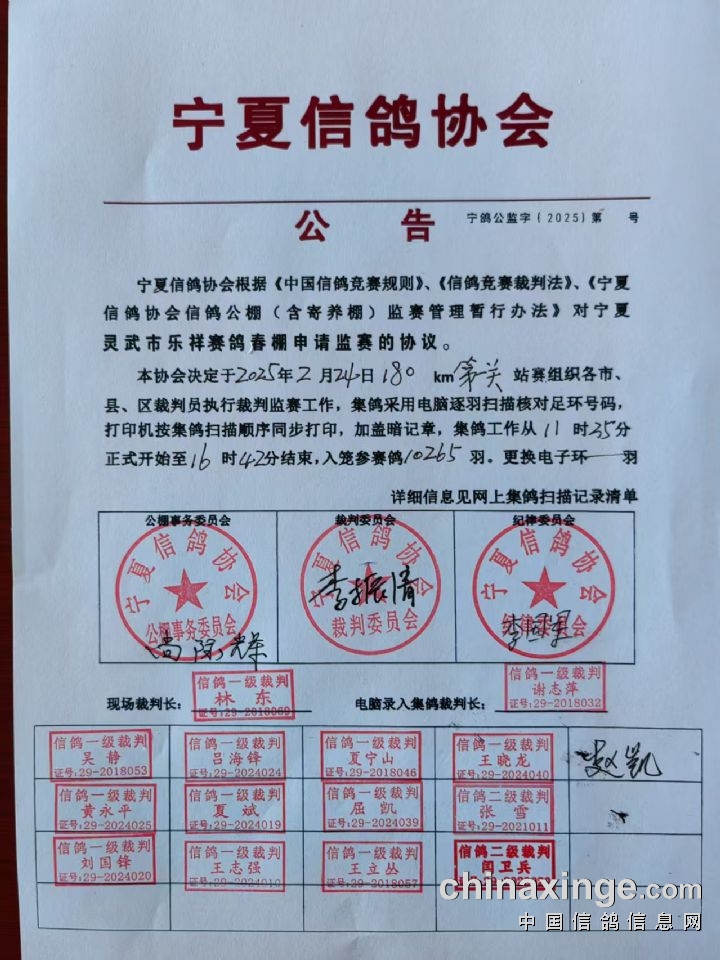 宁夏信鸽协会
公 告 宁鸽公监字（2025）第 号
宁夏信鸽协会根据《中国信鸽竞赛规则》、《信鸽竞赛裁判法》、《宁夏
信鸽协会信鸽公棚（含寄养棚）监赛管理暂行办法》对宁夏
灵武市乐祥赛鸽春棚申请监赛的协议。
本协会决定于2025年2月24日180 km第一关站赛组织各市、
县、区裁判员执行裁判监赛工作，集鸽采用电脑逐羽扫描核对足环号码，
打印机按集鸽扫描顺序同步打印，加盖暗记章，集鸽工作从11时35分
正式开始至16时42分结束，入笼参赛鸽10265羽。更换电子环 羽
详细信息见网上集鸽扫描记录清单
公棚事务委员会 裁判委员会 纪律委员会
宁夏信鸽协会 宁夏信鸽协会 宁夏信鸽协会
公棚事务委员会 裁判委员会 纪律委员会
李振清
现场裁判长： 信鸽一级裁判 林东 证号:29-2018069 电脑录入集鸽裁判长： 信鸽一级裁判 谢志萍 证号:29-2018032
信鸽一级裁判 信鸽一级裁判 信鸽一级裁判 信鸽一级裁判
吴静 吕海锋 夏宁山 王晓龙 赵凯
证号:29-2018053 证号:29-2024024 证号:29-2018046 证号:29-2024040
信鸽一级裁判 信鸽一级裁判 信鸽一级裁判 信鸽二级裁判
黄永平 夏斌 屈凯 张雪
证号:29-2024025 证号:29-2024019 证号:29-2024039 证号:29-2021011
信鸽一级裁判 信鸽一级裁判 信鸽一级裁判 信鸽二级裁判
刘国锋 王志强 王立丛 闫卫兵
证号:29-2024020 证号:29-2024010 证号:29-2018057
chinaxinge.com
中国信鸽信息网